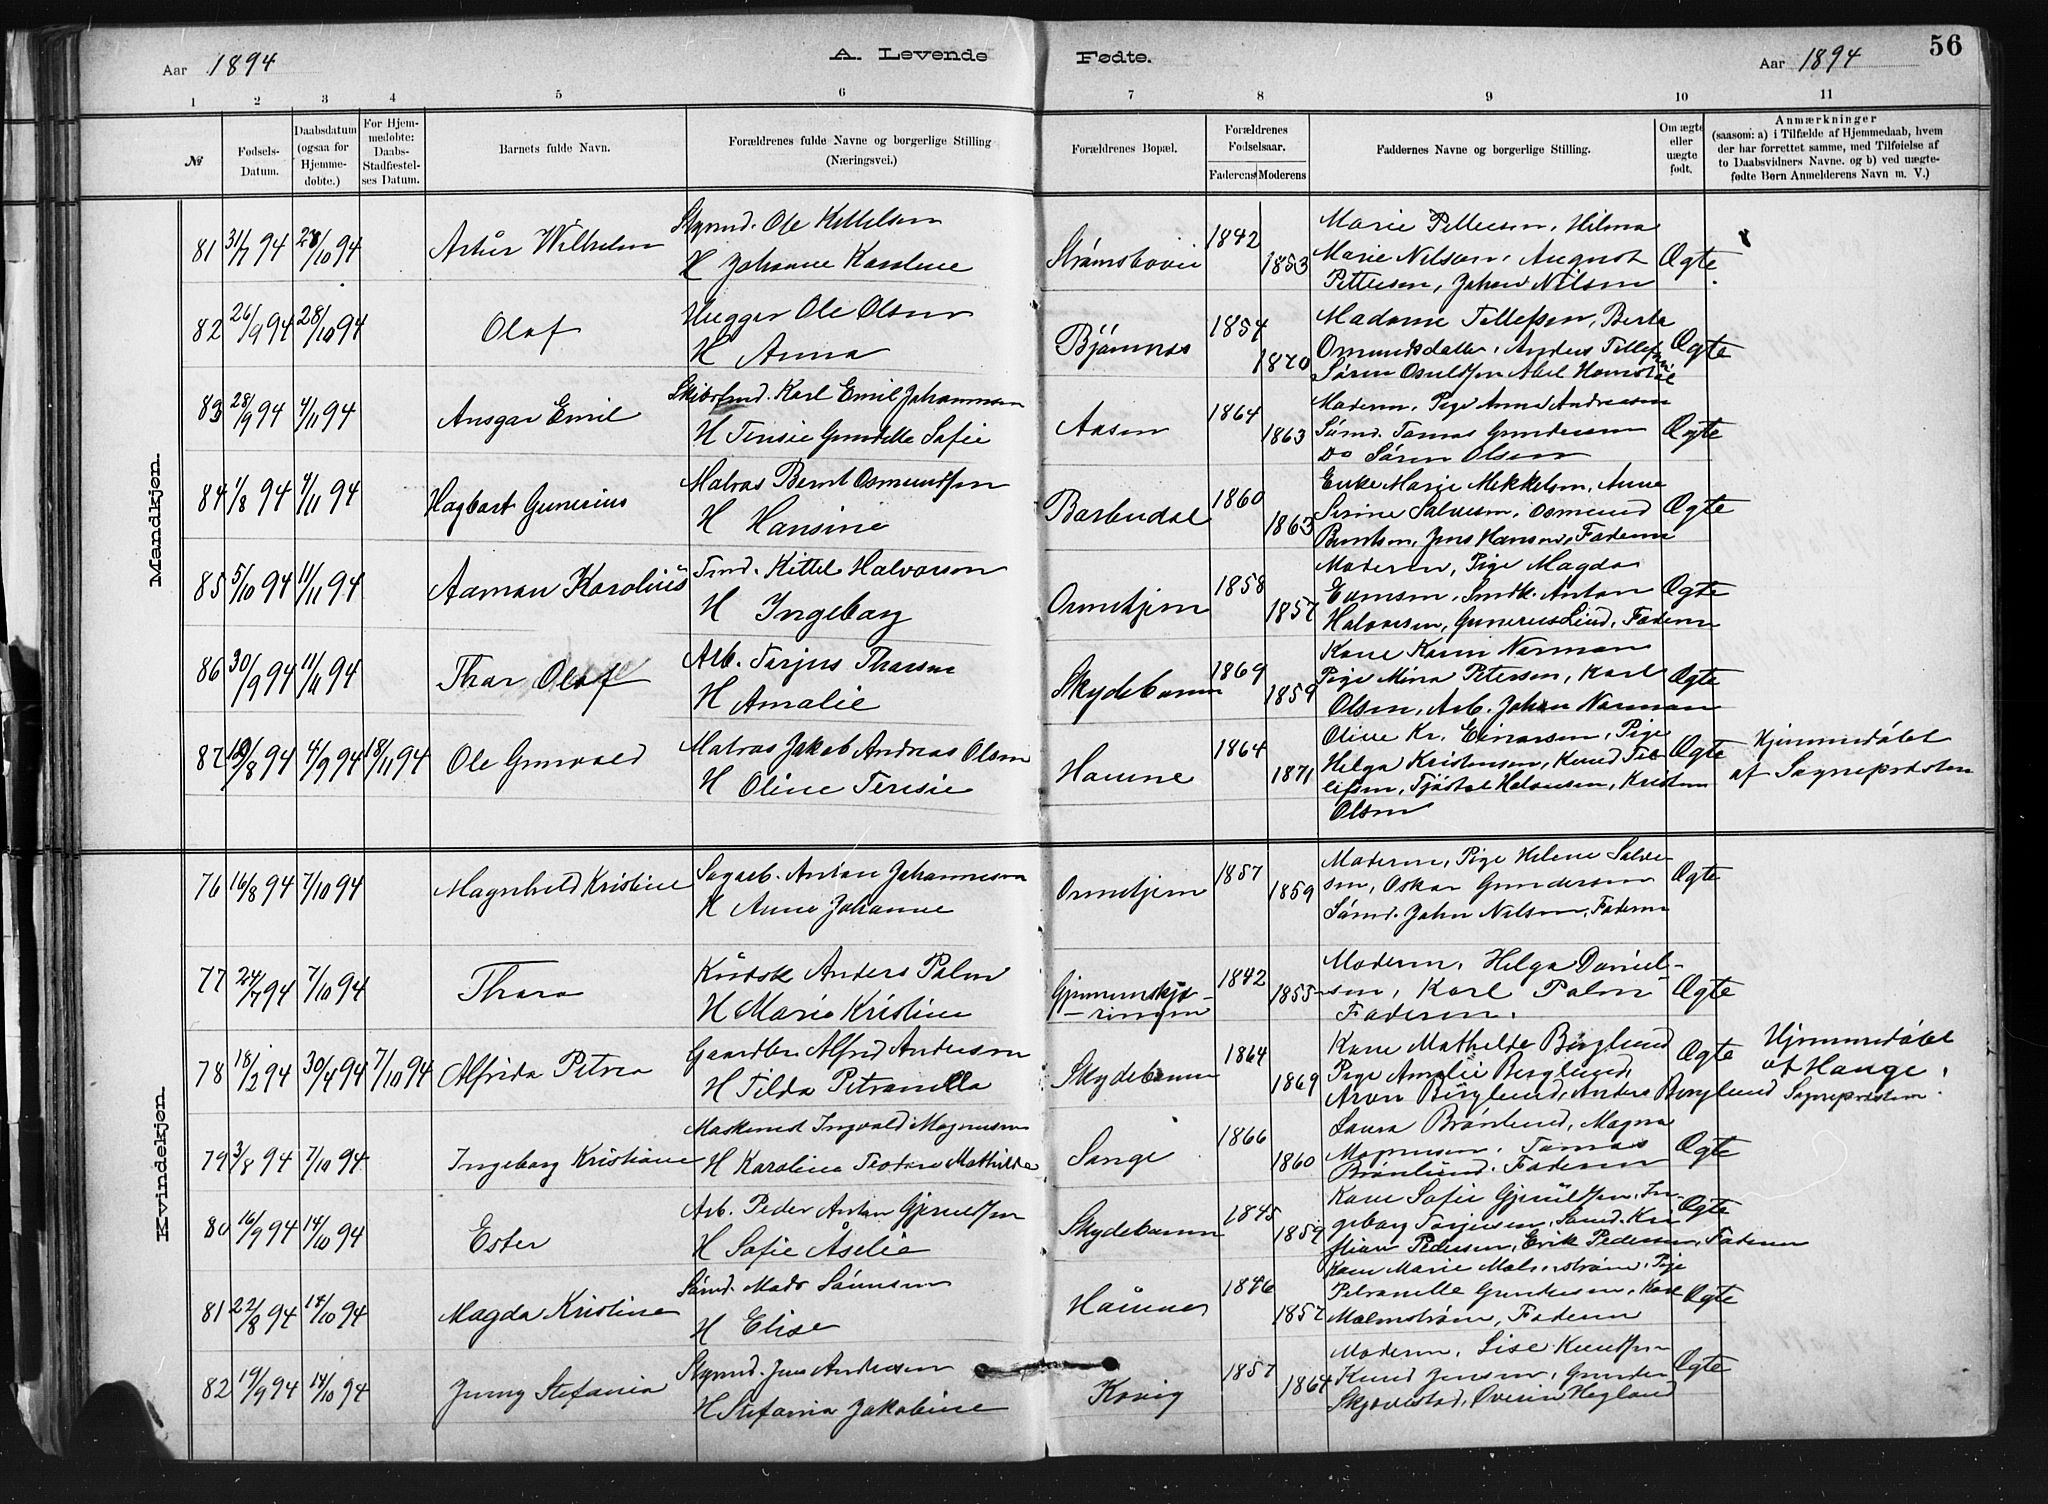 Aar 1894 A. Levende Fødte. Aar 1894 56
1 2 3 4 5 6 7 8 9 10 11
№ Fødsels-Datum. Daabsdatum (ogsaa for Hjemme-døbte.) For Hjem-medøbte: Daabs-Stadfæstel-ses Datum. Barnets fulde Navn. Forældrenes fulde Navne og borgerlige Stilling (Næringsvei.) Forældrenes Bopæl. Forældrenes Fødselsaar. Faderens Moderens Faddernes Navne og borgerlige Stilling. Om ægte eller uægte født. Anmærkninger (saasom: a) i Tilfælde af Hjemmedaab, hvem der har forrettet samme, med Tilføielse af to Daabsvidners Navne. og b) ved uægte-fødte Børn Anmelderens Navn m. V.)
Mandkjøn.
Marie Pettersen, Hilma
81 31/7 94 28/10 94 Artur Wilhelm Ole Kittelsen 1842 Marie Nilsen, August
H Johanne Karoline 1853 Pettersen, Johan Nilsen Ægte
82 26/9 94 28/10 94 Olaf Hugger Ole Olsen Bjønnes 1854 Madame Tellefsen, Berta
H Anna 1870 Omundsdatter, Anders Tellefsen Ægte
Søren
83 28/9 94 4/11 94 Ansgar Emil Karl Emil Johannesen Aasen 1864 Moderen, Pige Anna Andreasen
H Terisie Gundelle Sofie 1863 Sømd. Tomas Gundersen Ægte
Do Søren Olsen
84 1/8 94 4/11 94 Hagbart Gunerius Matros Bernt Osmundsen Barbudal 1860 Enke Marie Mikkelsen, Anne
H Hansine 1863 Serine Salvesen, Osmund Ægte
Berntsen, Jens Hansen, Faderen
85 5/10 94 11/11 94 Aaman Karolius Tmd. Kittel Halvorsen 1858 Moderen, Pige Magda
H Ingeborg 1857 Anton Ægte
Halvorsen, Gunerius Lind, Faderen
86 30/9 94 11/11 94 Thor Olaf Arb. Torjus Thorsen Skydebanen 1869 Kone Karin Norman
H Amalie 1859 Pige Mina Petersen, Karl Ægte
Olsen, Arb. Johan Norman
87 19/8 94 4/9 94 18/11 94 Ole Gunvald Matros Jakob Andreas Olsen Havne 1864 Oline Kr. Einarsen, Pige
H Oline Terisie 1871 Helga Kristensen, Knud Tel- Ægte Hjemmedøbt
lefsen, Halvorsen, Kristen af Sognepræsten
Olsen
Kvindekjøn.
76 16/8 94 7/10 94 Magnhild Kristine Sagarb. Anton Johannesen 1857 Moderen, Pige Helene Salve-
H Anne Johanne 1859 sen, Oskar Gundersen Ægte
Sømd. John Nilsen, Faderen
77 24/7 94 7/10 94 Thora Anders Palm 1842 Moderen, Helga Daniel-
H Marie Kristine 1855 sen, Karl Palm Ægte
Faderen.
78 18/2 94 30/4 94 7/10 94 Alfrida Petrea Alfred Andersen Skydebanen 1864 Kone Mathilde Berglund Ægte Hjemmedøbt
H Tilda Petranella 1869 Pige Amalie Berglund, af Hauge,
Aron Berglund, Anders Berglund Sognepræsten.
79 3/8 94 7/10 94 Ingeborg Kristiane Maskinist Ingvald Magnusen Songe 1866 Laura Brønlund, Magna
H Karoline Teodore Mathilde 1860 Magnusen, Tomas Ægte
Brønlund, Faderen
80 16/9 94 14/10 94 Ester Arb. Peder Anton Gjeruldsen Skydebanen 1845 Kone Sofie Gjeruldsen, In-
H Sofie Åselie 1859 geborg Torjusen, Sømd. Kri- Ægte
stian Pedersen, Erik Pedersen, Faderen
81 22/8 94 14/10 94 Magda Kristine Sømd. Mads Sørensen 1846 Kone Marie Malmstrøm, Pige
H Elise 1857 Petranelle Gundersen, Karl Ægte
Malmstrøm, Faderen
82 19/9 94 14/10 94 Jenny Stefania Jens Andersen Krøig 1857 Moderen, Lise Knudsen
H Stefania Jakobine 1864 Knud Jensen, Gunder Ægte